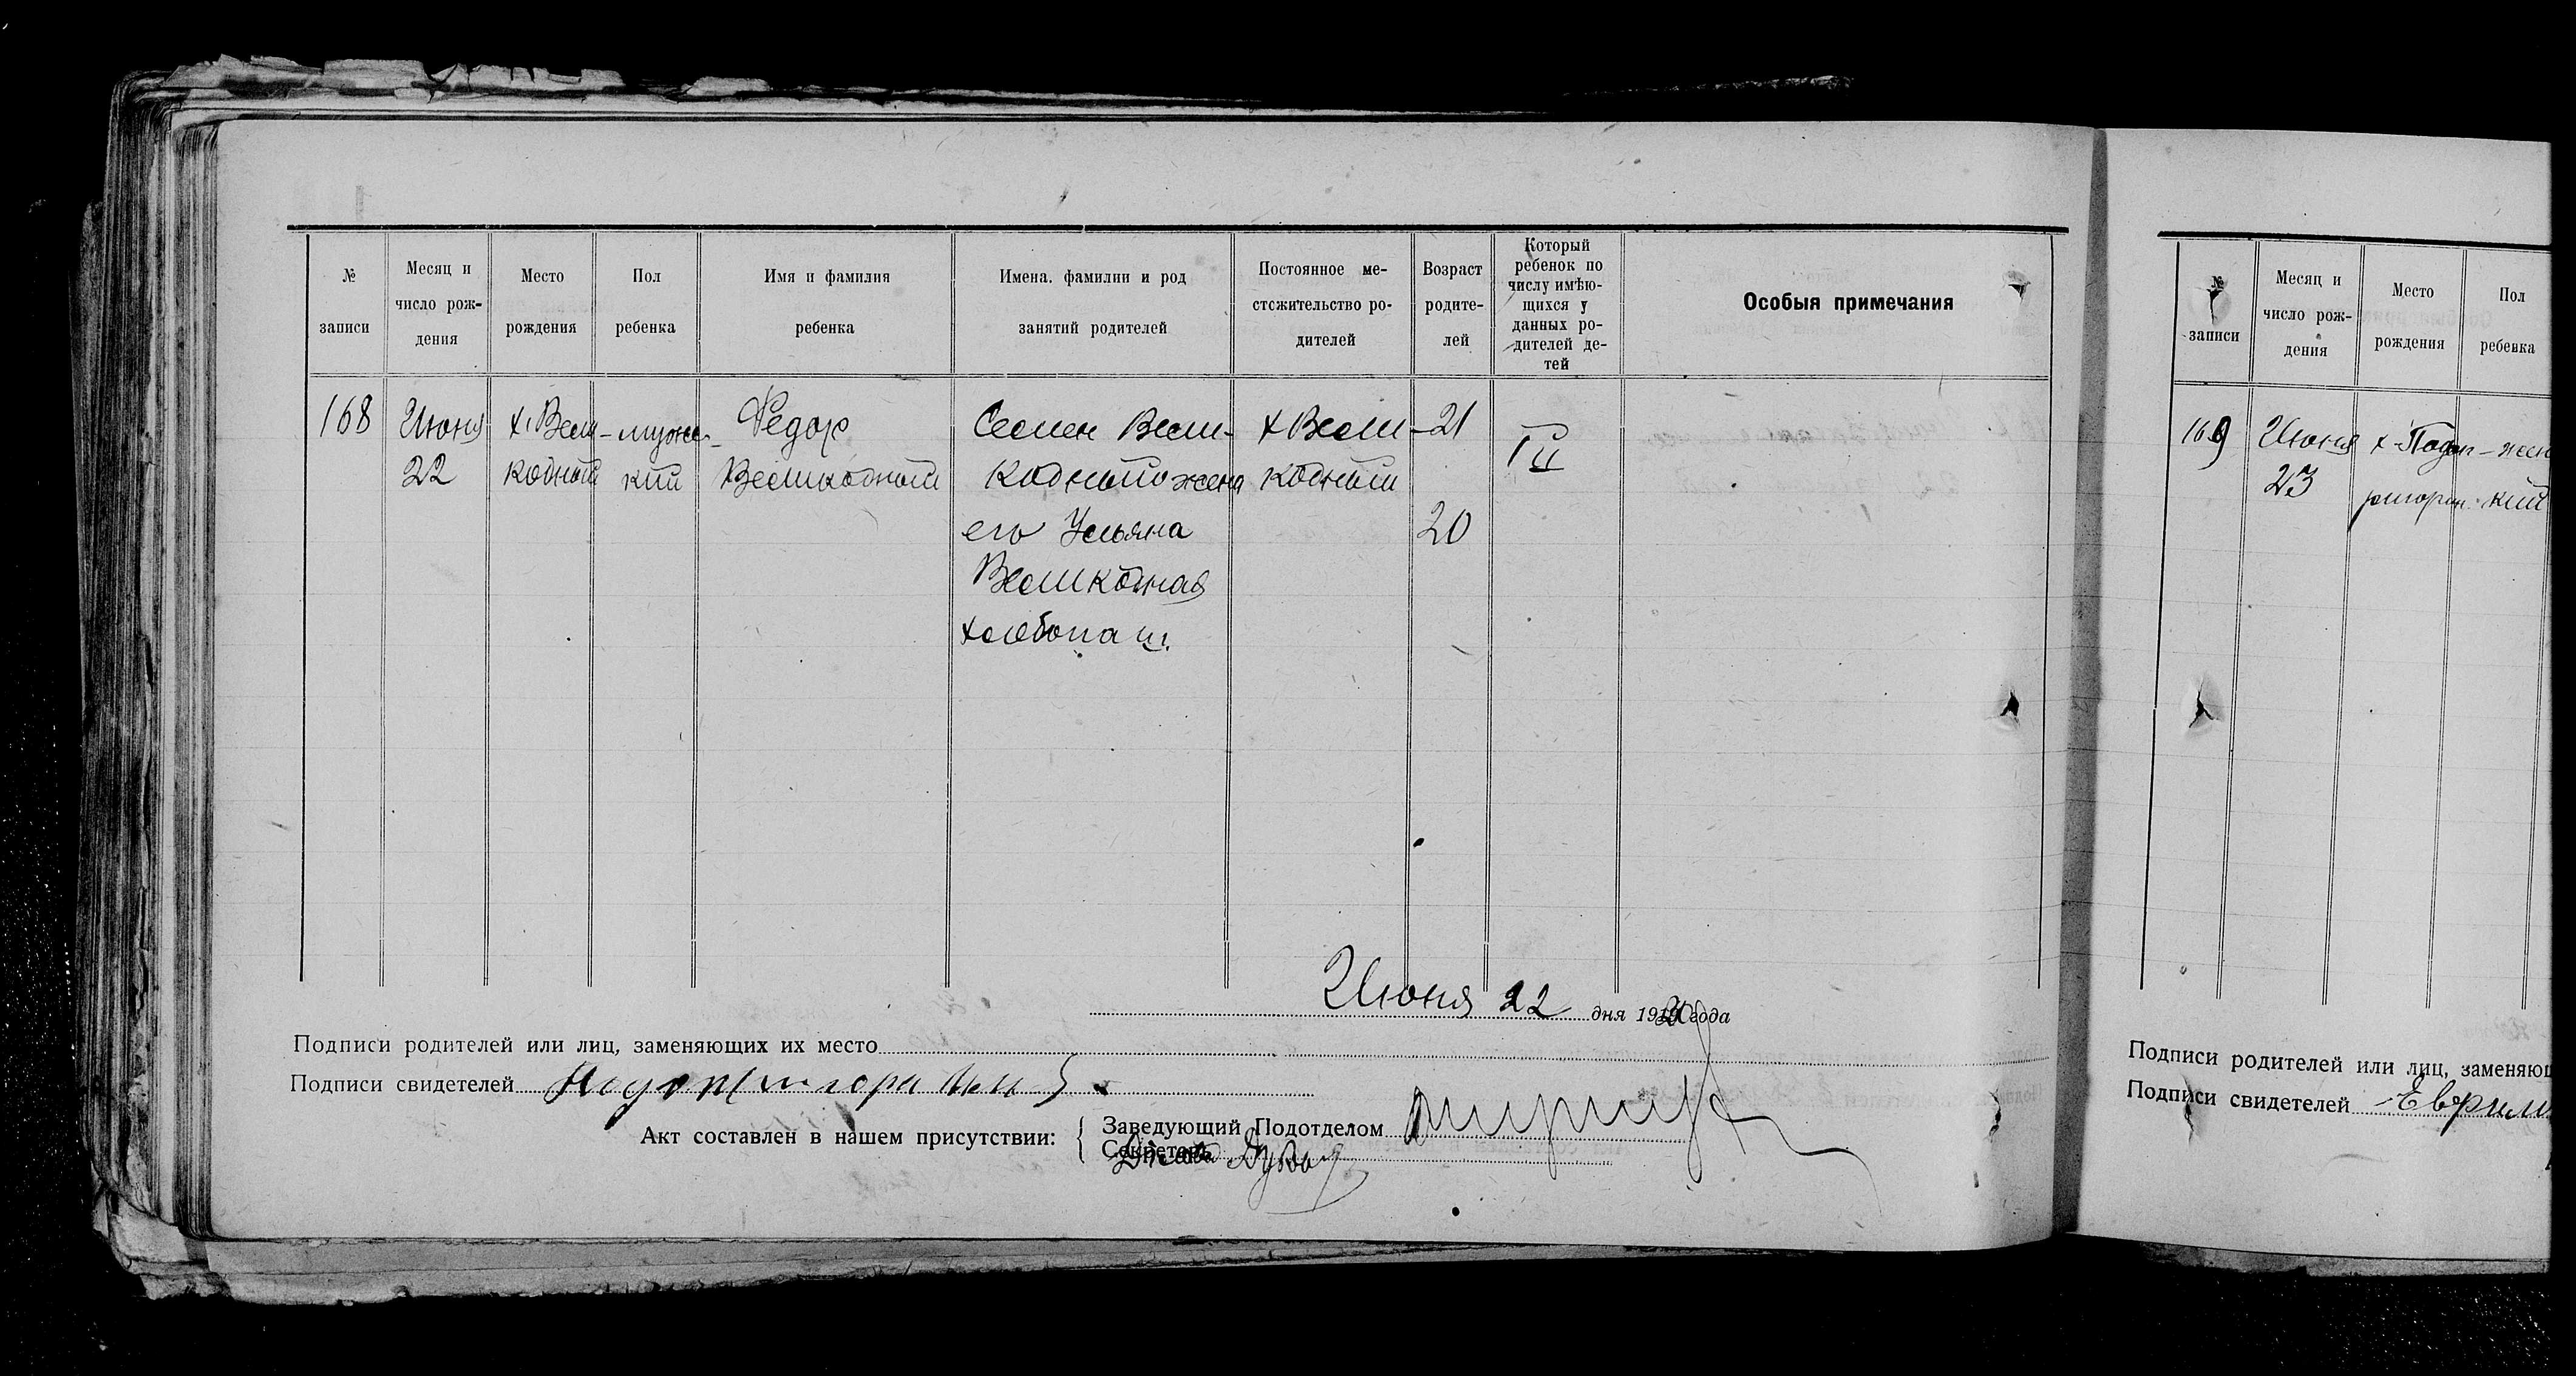 № записи
Месяц и число рождения
Место рождения
Пол ребенка
Имя и фамилия ребенка
Имена, фамилии и род занятий родителей
Постоянное местожительство родителей
Возраст родителей
Который ребенок по числу имѣющихся у данных родителей детей
Особыя примечания
168
Июня
22
х. Вели-
кодный
мужс-
кий
Федор
Великодный
Семен Вели-
кодный жена
его Ульяна
Великодная
хлебопаш.
х Вели-
кодный
21
20
II
Июня 22 дня 1920 года
Подписи родителей или лиц, заменяющих их место
Подписи свидетелей
Акт составлен в нашем присутствии:
Заведующий Подотделом
Секретарь
№ записи
Месяц и число рождения
Место рождения
Пол ребенка
169
Июня
23
х
кий
Подписи родителей или лиц, заменяющ
Подписи свидетелей